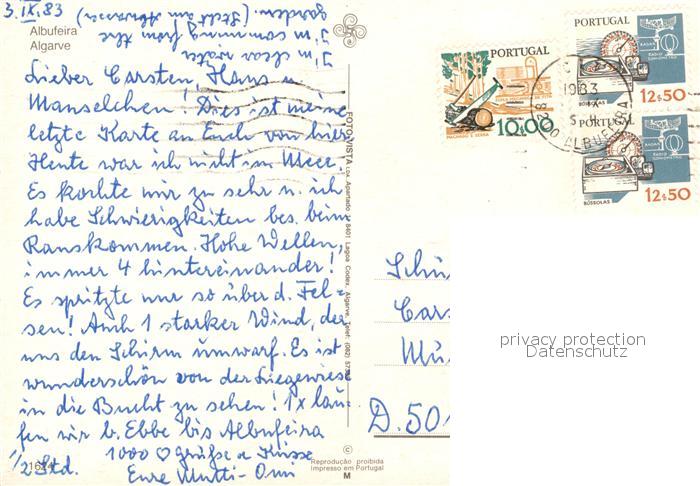 3.IX.83
Albufeira
Algarve
garden. (Steht am Abreissen)
I'm coming from the
I'm clear water
Lieber Carsten, Hans u.
Manselchen! Dies ist meine
letzte Karte an Euch von hier
Heute war ich nicht im Meer.
Es kochte mir zu sehr u. ich
habe Schwierigkeiten bes. beim
Rauskommen. Hohe Wellen,
immer 4 hintereinander!
Es spritzte nur so über d. Fel-
sen! Auch 1 starker Wind, der
uns den Schirm umwarf. Es ist
wunderschön von der Liegewiese
in die Bucht zu sehen! 1x lau-
fen wir b. Ebbe bis Albufeira
1/2 Std.
1000 ♡ Grüße u Küsse
Eure Mutti-Omi
1624
FOTO VISTA Lda. Apartado 8401 Lagoa Codex, Algarve, Telef: (082)
©
Reprodução proibida
Impresso em Portugal
M
PORTUGAL
10$00
PORTUGAL
RADAR
RADIO
GONIOMETRO
BÚSSOLAS
12$50
PORTUGAL
RADAR
RADIO
GONIOMETRO
BÚSSOLAS
12$50
1983
ALBUFEIRA
Schü
Cars
Mü
D.501
privacy protection
Datenschutz